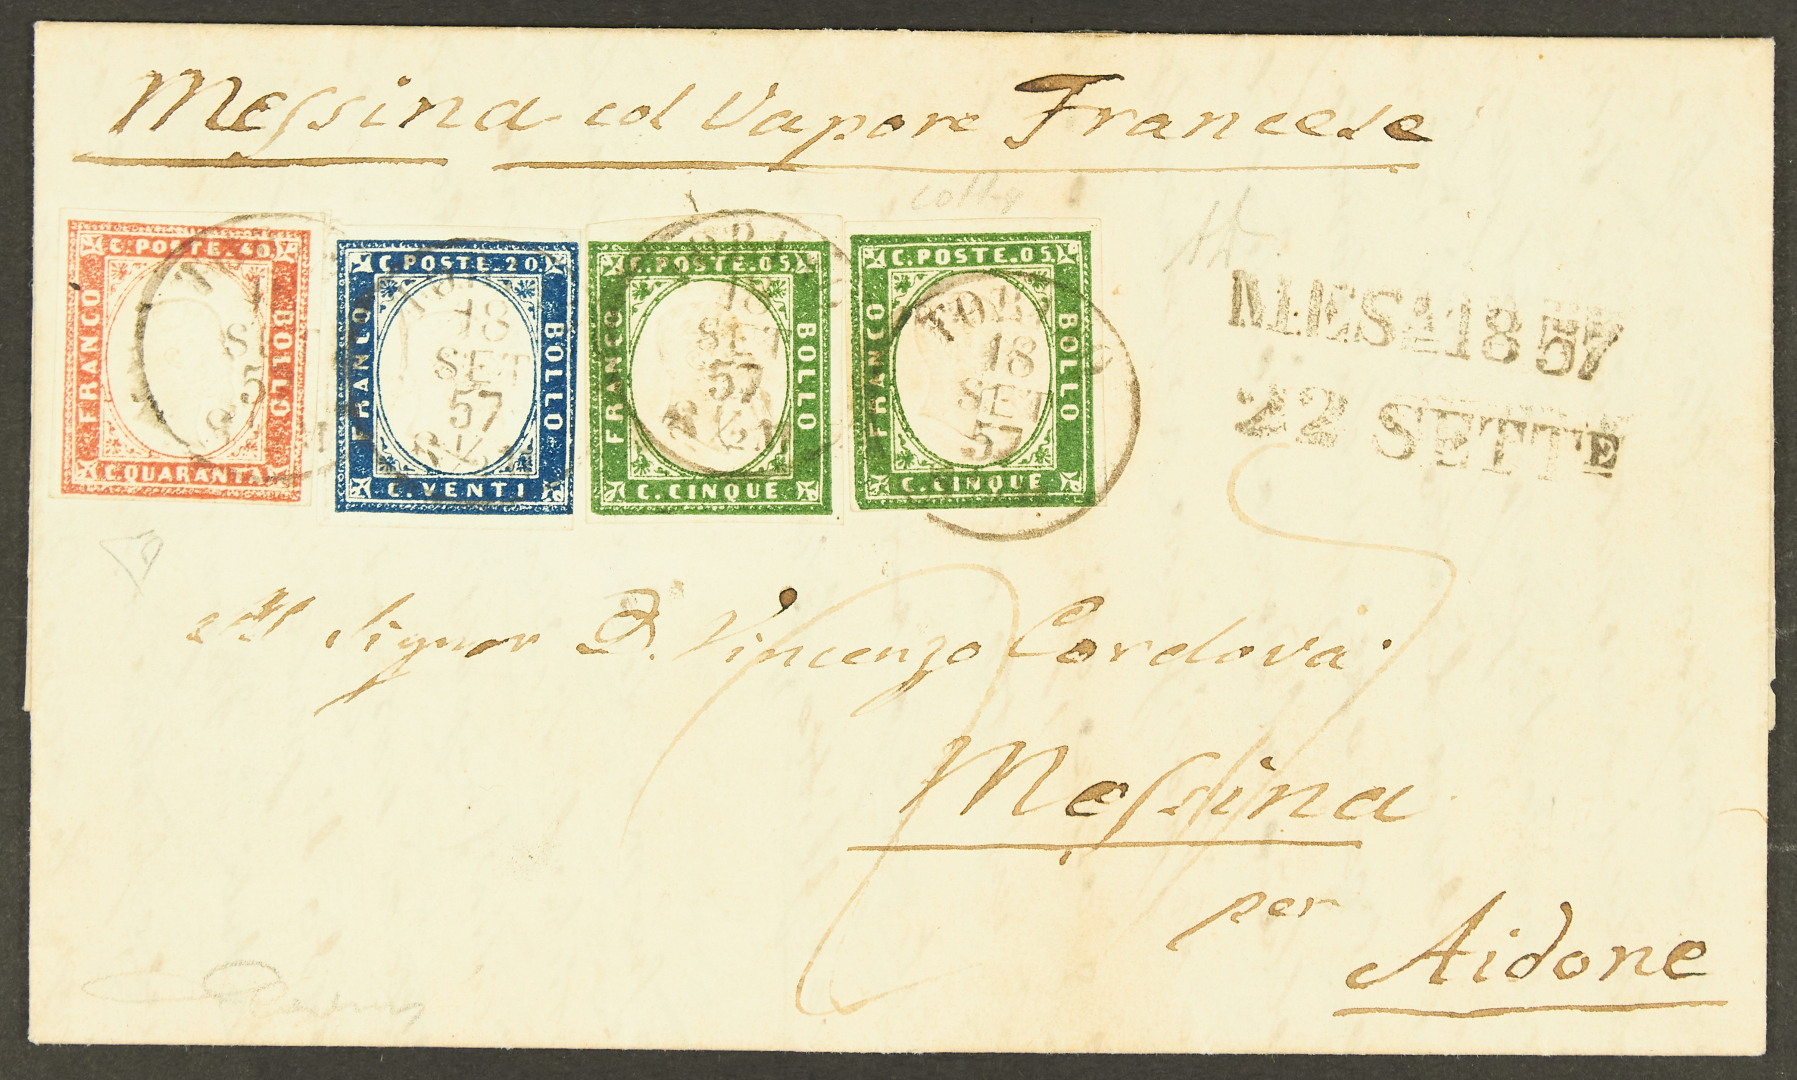 Messina col Vapore Francese
C. POSTE. 40
FRANCO
BOLLO
C. QUARANTA
C. POSTE. 20
FRANCO
BOLLO
C. VENTI
18
SET
57
8½
C. POSTE. 05
FRANCO
BOLLO
C. CINQUE
18
SET
57
8½ M
C. POSTE. 05
FRANCO
BOLLO
C. CINQUE
TORINO
18
SET
57
1857
22 SETTE
Al Signor D. Vincenzo Cordova
Messina
per
Aidone